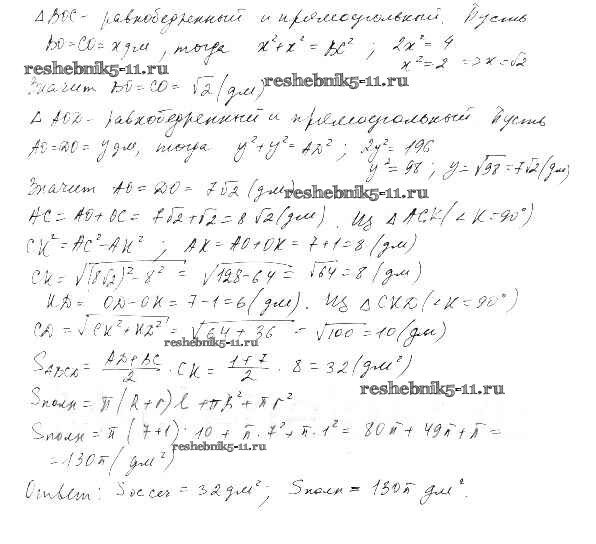 ΔBOC - равнобедренный и прямоугольный. Пусть
BO=CO=x дм, тогда x²+x²=BC²; 2x²=4
x²=2 => x=√2
reshebnik5-11.ru
Значит BO=CO=√2 (дм)
ΔAOD - равнобедренный и прямоугольный Пусть
AO=DO=y дм, тогда y²+y²=AD²; 2y²=196
y²=98; y=√98=7√2 (дм)
Значит AO=DO=7√2 (дм)
reshebnik5-11.ru
AC=AO+OC=7√2+√2=8√2 (дм). Из ΔACK (∠K=90°)
CK²=AC²-AK²; AK=AO+OK=7+1=8 (дм)
CK=√(8√2)²-8²=√128-64=√64=8 (дм)
KD=OD-OK=7-1=6 (дм). Из ΔCKD (∠K=90°)
CD=√CK²+KD²=√64+36=√100=10 (дм)
reshebnik5-11.ru
S_ABCD=(AD+BC)/2·CK=(1+7)/2·8=32 (дм²)
reshebnik5-11.ru
Sполн=π(R+r)l+πR²+πr²
Sполн=π(7+1)·10+π·7²+π·1²=80π+49π+π=
=130π (дм²)
reshebnik5-11.ru
Ответ: Sос сеч=32 дм²; Sполн=130π дм².